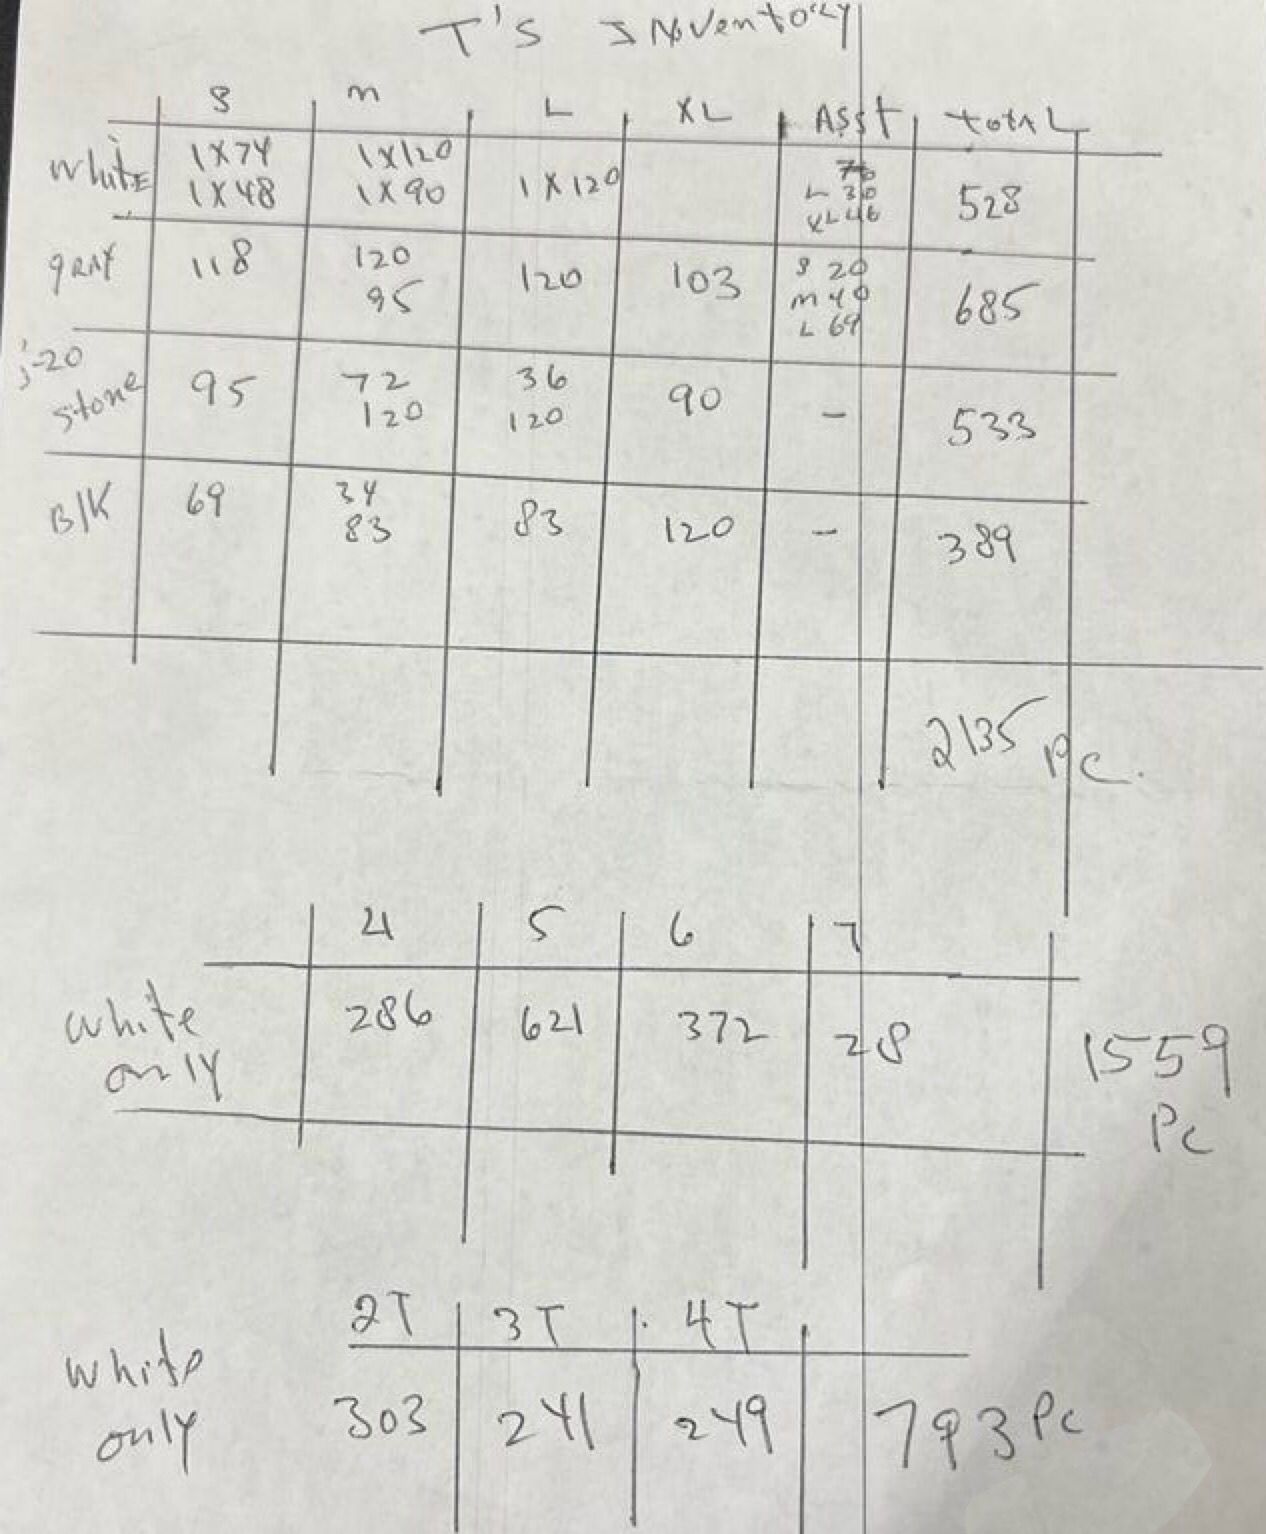 T's Inventory
S m L XL Asst totAL
white 1X74 1X120 1X120 76 528
1X48 1X90 L 30
XL 46
gRAY 118 120 120 103 S 20 685
95 m 40
L 69
j-20 stone 95 72 36 90 - 533
120 120
B/K 69 34 83 120 - 389
83
2135 PC.
4 5 6 7
white 286 621 372 28 1559
only PC
2T 3T 4T
white 303 241 249 793 PC
only